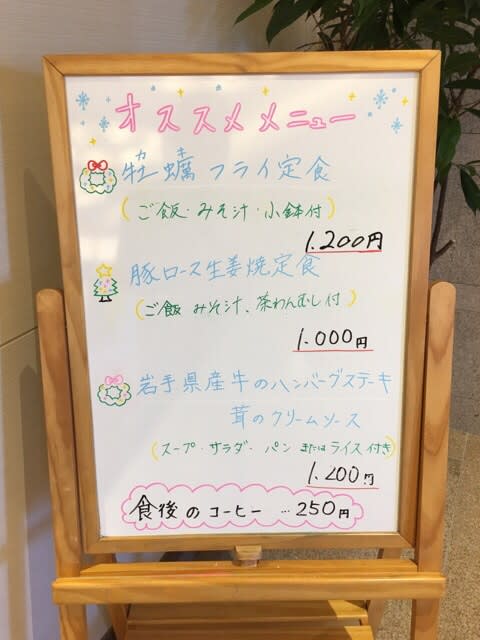 オススメメニュー
牡蠣フライ定食
カキ
(ご飯・みそ汁・小鉢付)
1.200円
豚ロース生姜焼定食
(ご飯 みそ汁、茶わんむし付)
1.000円
岩手県産牛のハンバーグステーキ
茸のクリームソース
(スープ・サラダ・パン またはライス付き)
1.200円
食後のコーヒー …250円